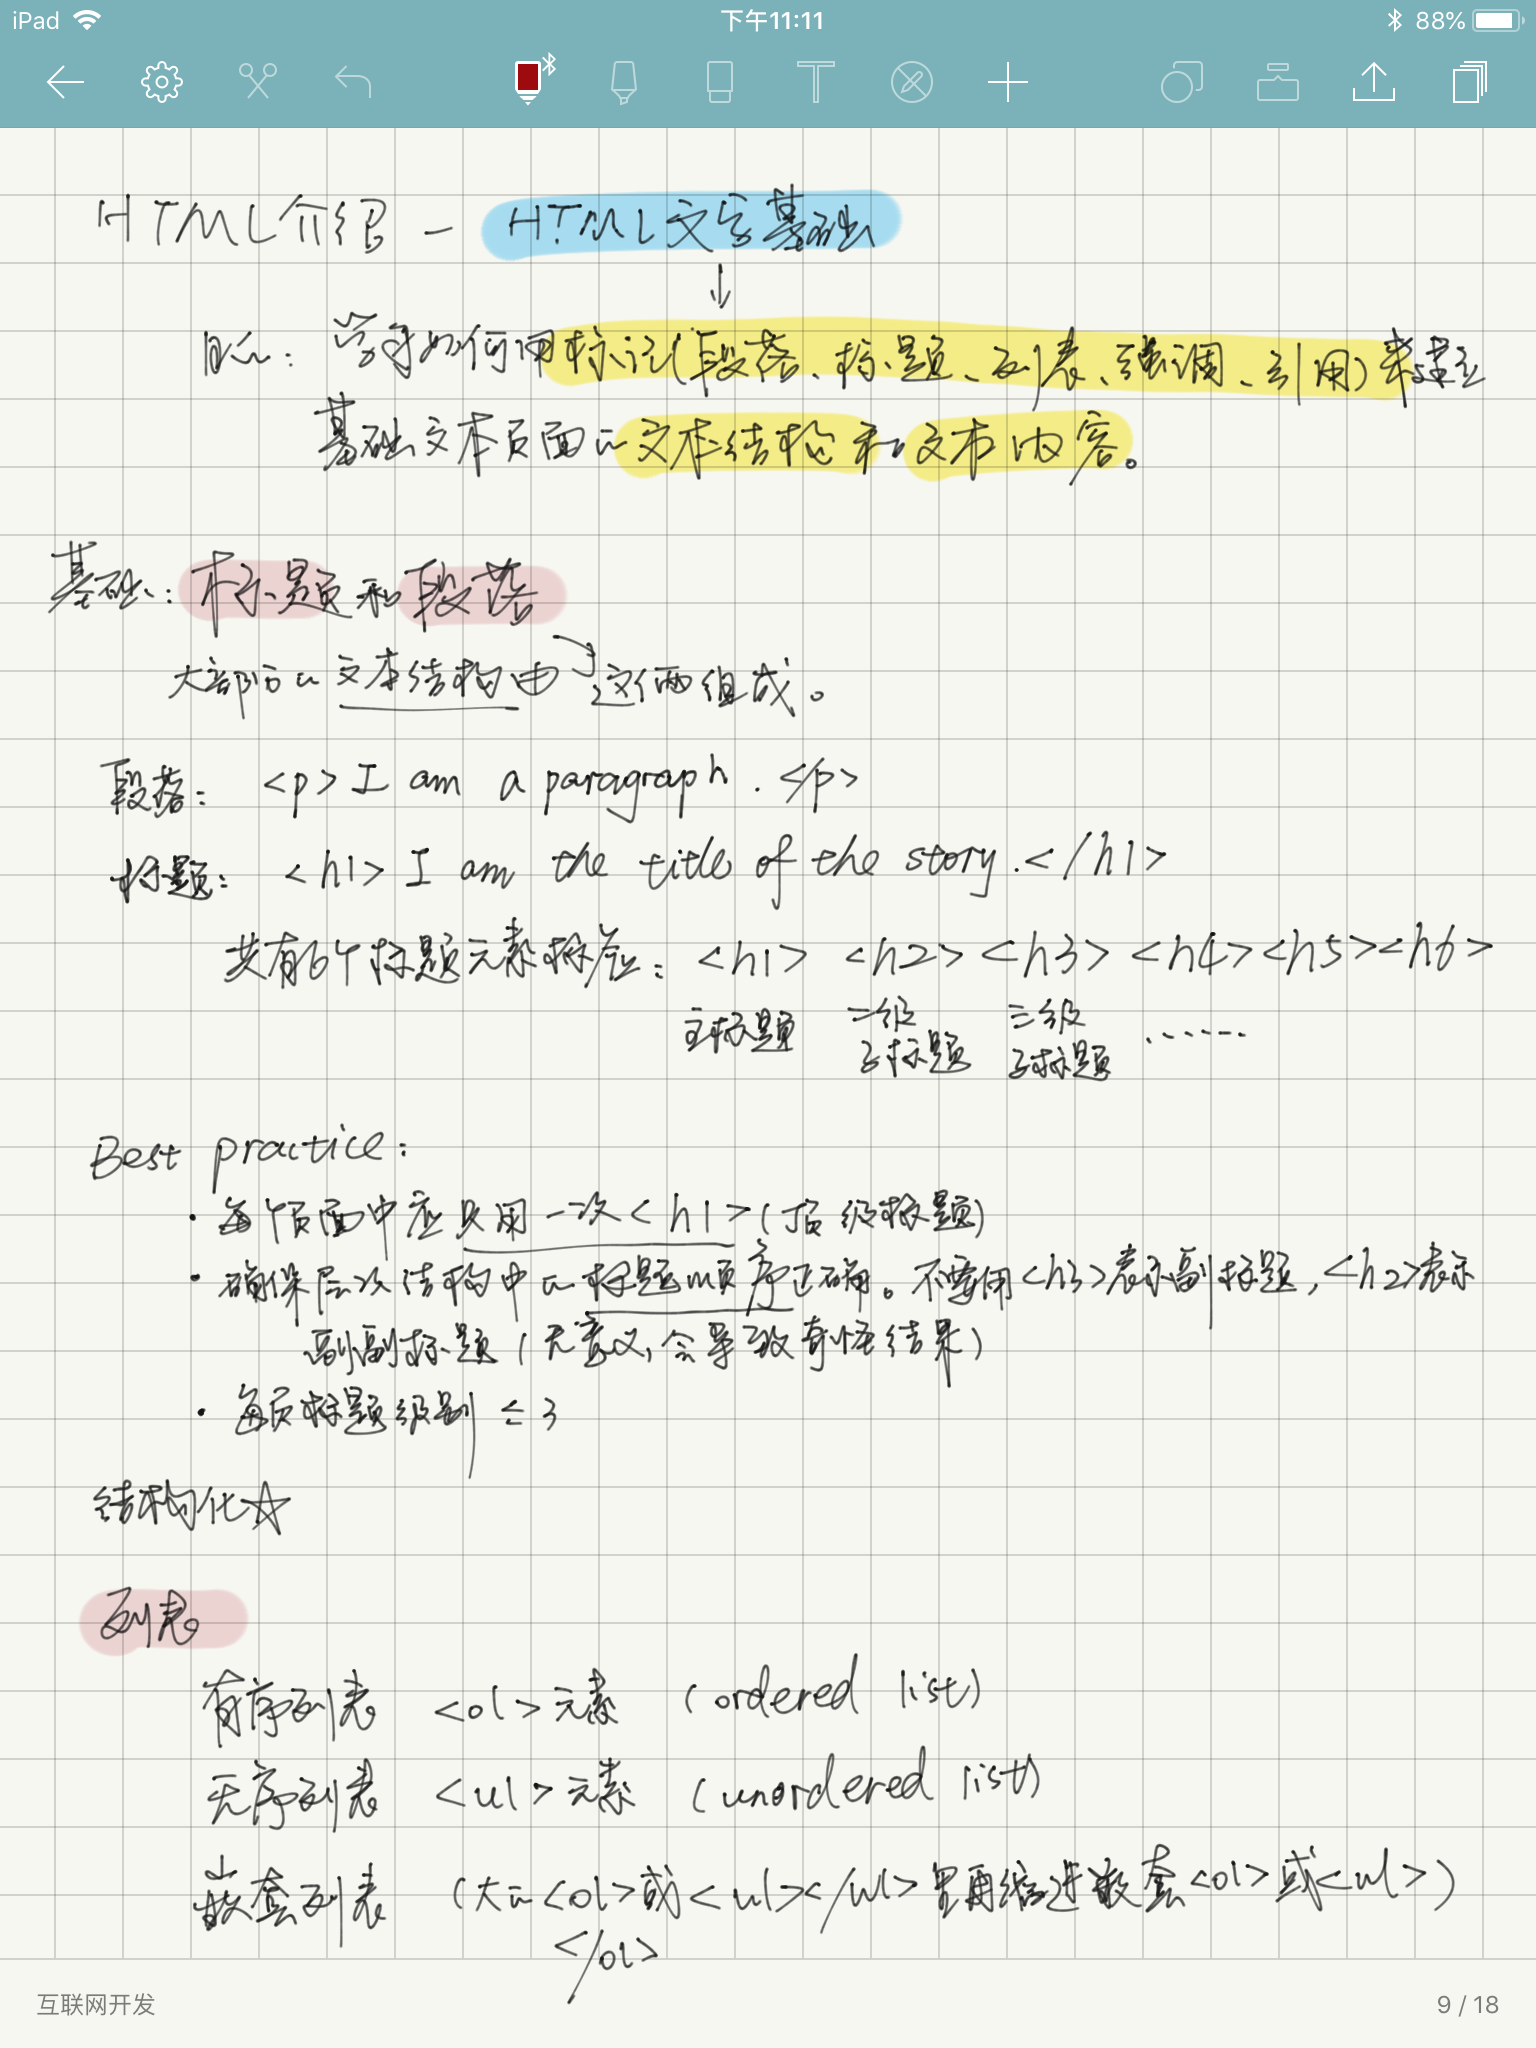 iPad 下午11:11 88%
HTML介绍 - HTML文字基础
↓
目的: 学习如何用标记(段落、标题、列表、强调、引用)来建立
基础文本页面的文本结构和文本内容。
基础: 标题和段落
大部分的文本结构由这俩组成。
段落: <p> I am a paragraph. </p>
标题: <h1> I am the title of the story.</h1>
共有6个标题元素标签: <h1> <h2> <h3> <h4> <h5> <h6>
主标题 二级子标题 三级子标题 ......
Best practice:
· 每个页面中应只用一次<h1>(顶级标题)
· 确保层次结构中的标题顺序正确。不要用<h3>表示副标题,<h2>表示
副副标题(无意义,会导致奇怪结果)
· 每页标题级别 ≤ 3
结构化☆
列表
有序列表 <ol>元素 (ordered list)
无序列表 <ul>元素 (unordered list)
嵌套列表 (大的<ol>或<ul></ul>里再缩进嵌套<ol>或<ul>)
</ol>
互联网开发 9 / 18